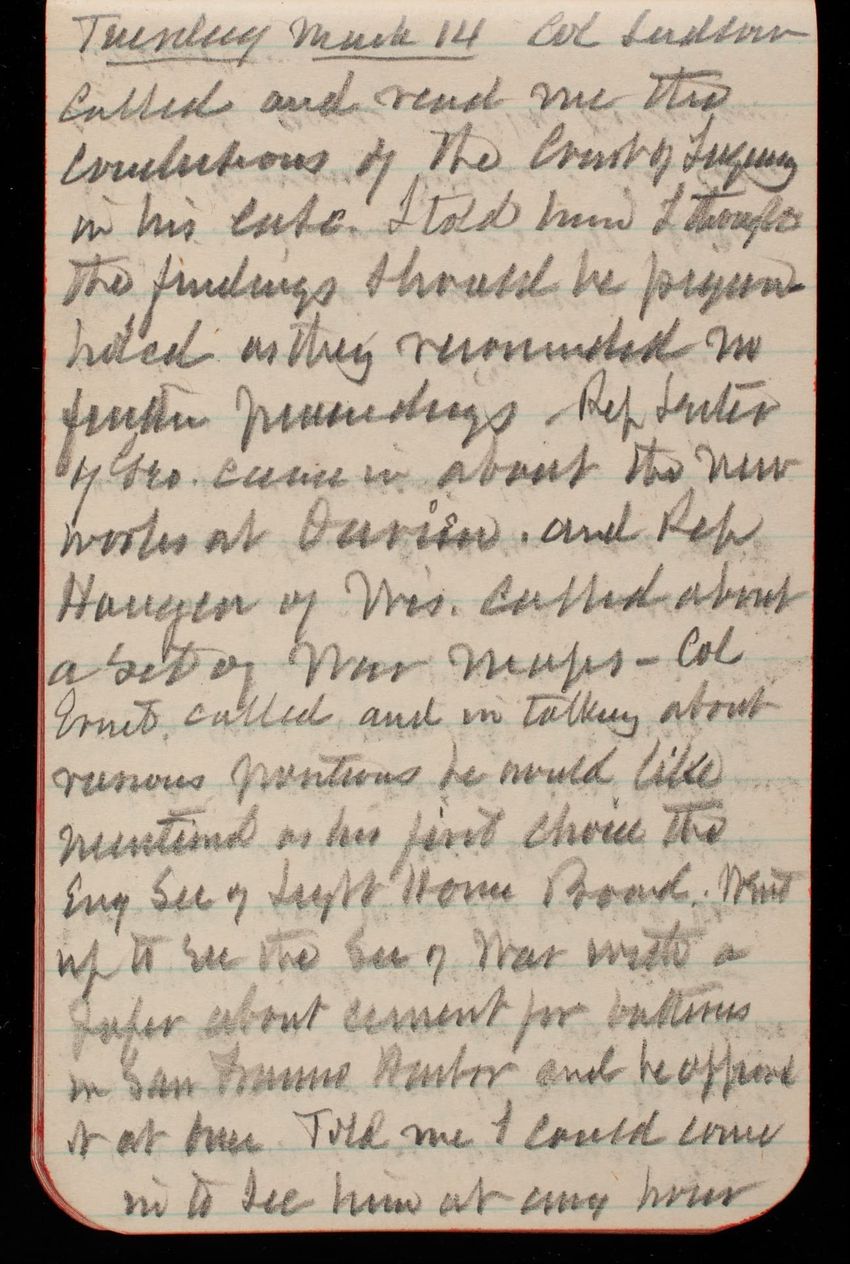 Tuesday March 14 Col Ludlow
called and read me the
conclusions of the Court of Inquiry
in his case. I told him I thought
the findings should be pigeon
holed as they recommended no
further proceedings - Rep Lester
of Geo. came in about the new
works at Darien. and Rep
Haugen of Wis. called about
a set of War Maps - Col
Ernst. called and in talking about
various positions he would like
mentioned as his first choice the
Eng Sec of Light House Board. Went
up to see the Sec of War with a
paper about cement for batteries
in San Francisco Harbor and he approved
it at once Told me I could come
in to see him at any hour